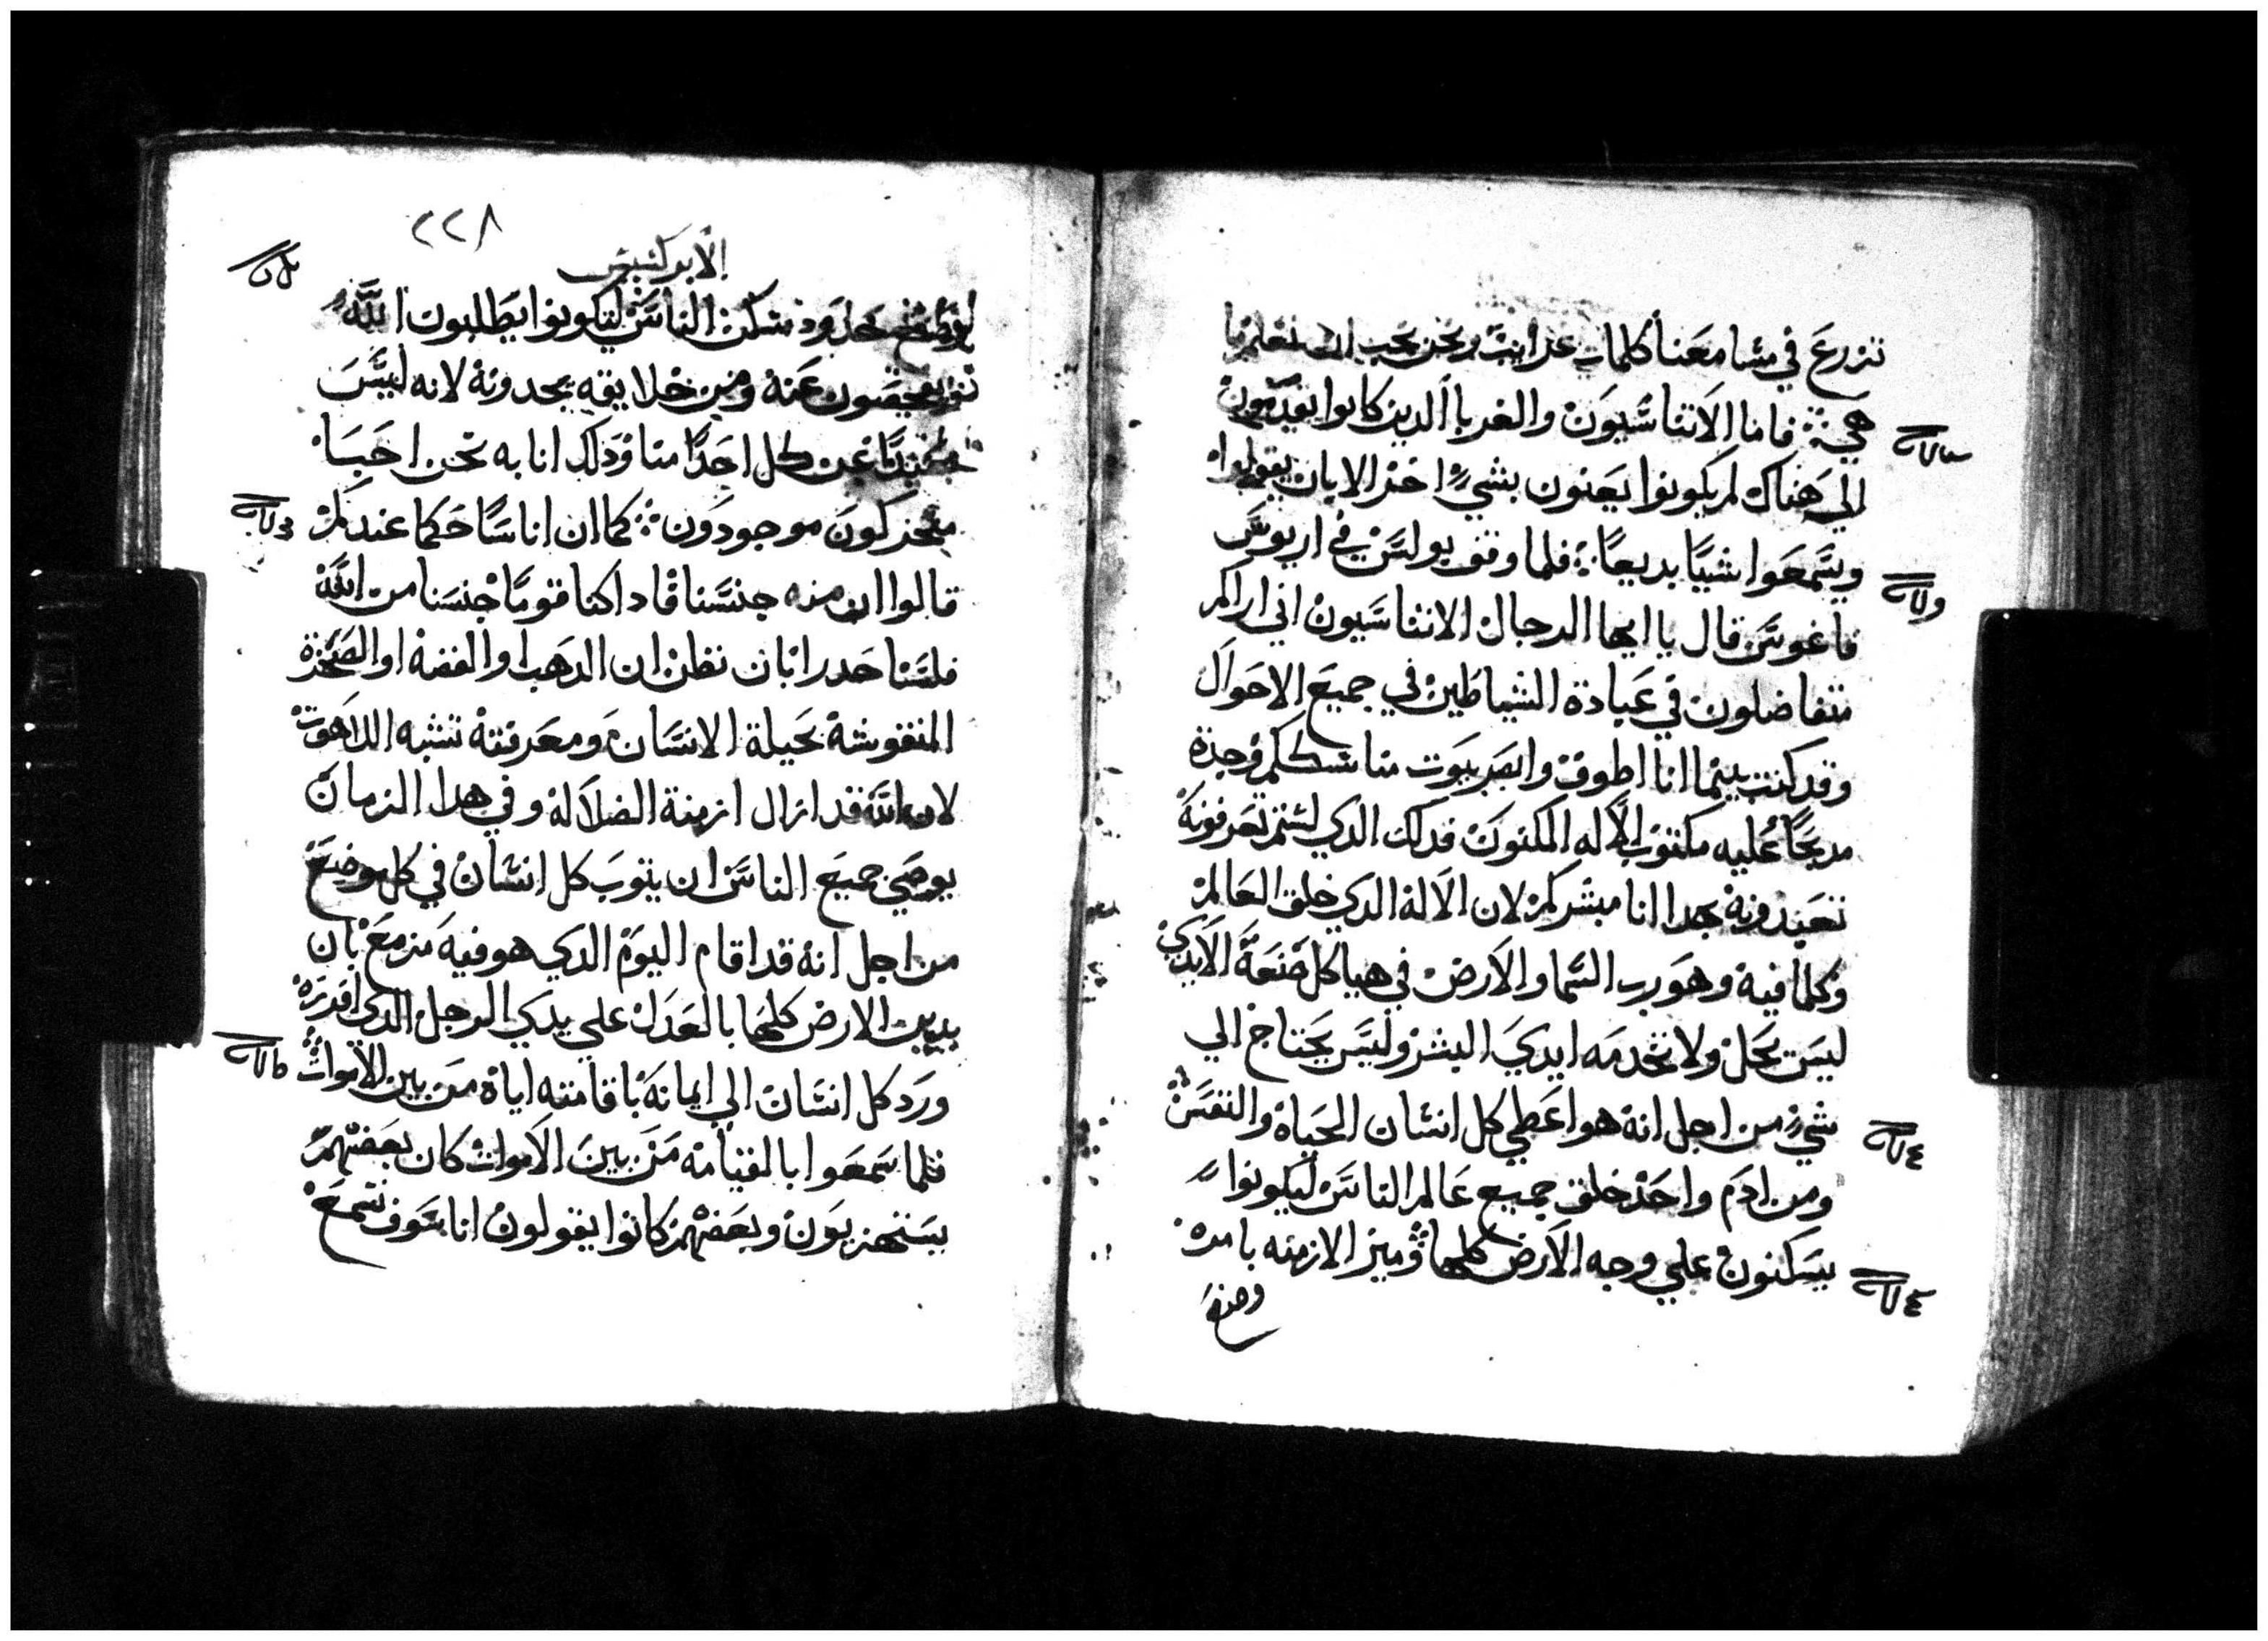 تزرع في مسامعنا كلمات غرايب ونحن نحب ان نعلم ما
هي فاما الاتناسيون والغربا الدين كانوا يقدمون
الي هناك لم يكونوا يعنون بشي اخر الا بان يقولوا
ويسمعوا شيا بديعا فلما وقف بولس في اريوس
فاغوس قال يا ايها الرجال الاتناسيون اني اراكم
متفاضلون في عبادة الشياطين في جميع الاحوال
وقد كنت بينما انا اطوف وابصر بيوت مناسككم وجدة
مدبحا عليه مكتوب الاله المكنون فدلك الدي لستم تعرفونه
تعبدونه بهدا انا مبشركم لان الاله الدي خلق العالم
وكلما فيه وهو رب السما والارض في هياكل صنعة الايدي
ليس يحل ولا تخدمه ايدي البشر وليس يحتاج الي
شي من اجل انه هو اعطي كل انسان الحياة والنفس
ومن ادم واحد خلق جميع عالم الناس ليكونوا
يسكنون علي وجه الارض كلها وميز الازمنه بامره
٢٢٨
الابركسيس
حدود مسكن الناس ليكونوا يطلبون الله
يفحصون عنه ومن خلايقه يجدونه لانه ليس
عن كل احدا منا ودلك انا به نحن احيا
متحركون موجودون كما ان اناسا حكما عندكم
قالوا ان منه جنسنا فادا كنا قوما جنسنا من الله
فلسنا حدرا بان نظن ان الدهب او الفضه او الصخرة
المنقوشة بحيلة الانسان ومعرفته تشبه اللاهوت
لان الله قد ازال ازمنة الضلاله وفي هدا الزمان
يوصي جميع الناس ان يتوب كل انسان في كل موضع
من اجل انه قد اقام اليوم الدي هو فيه مزمع بان
يدين الارض كلها بالعدل علي يدي الرجل الدي افرزه
ورد كل انسان الي ايمانه باقامته اياه من بين الاموات
فلما سمعوا بالقيامه من بين الاموات كان بعضهم
يستهزيون وبعضهم كانوا يقولون انا سوف نسمع